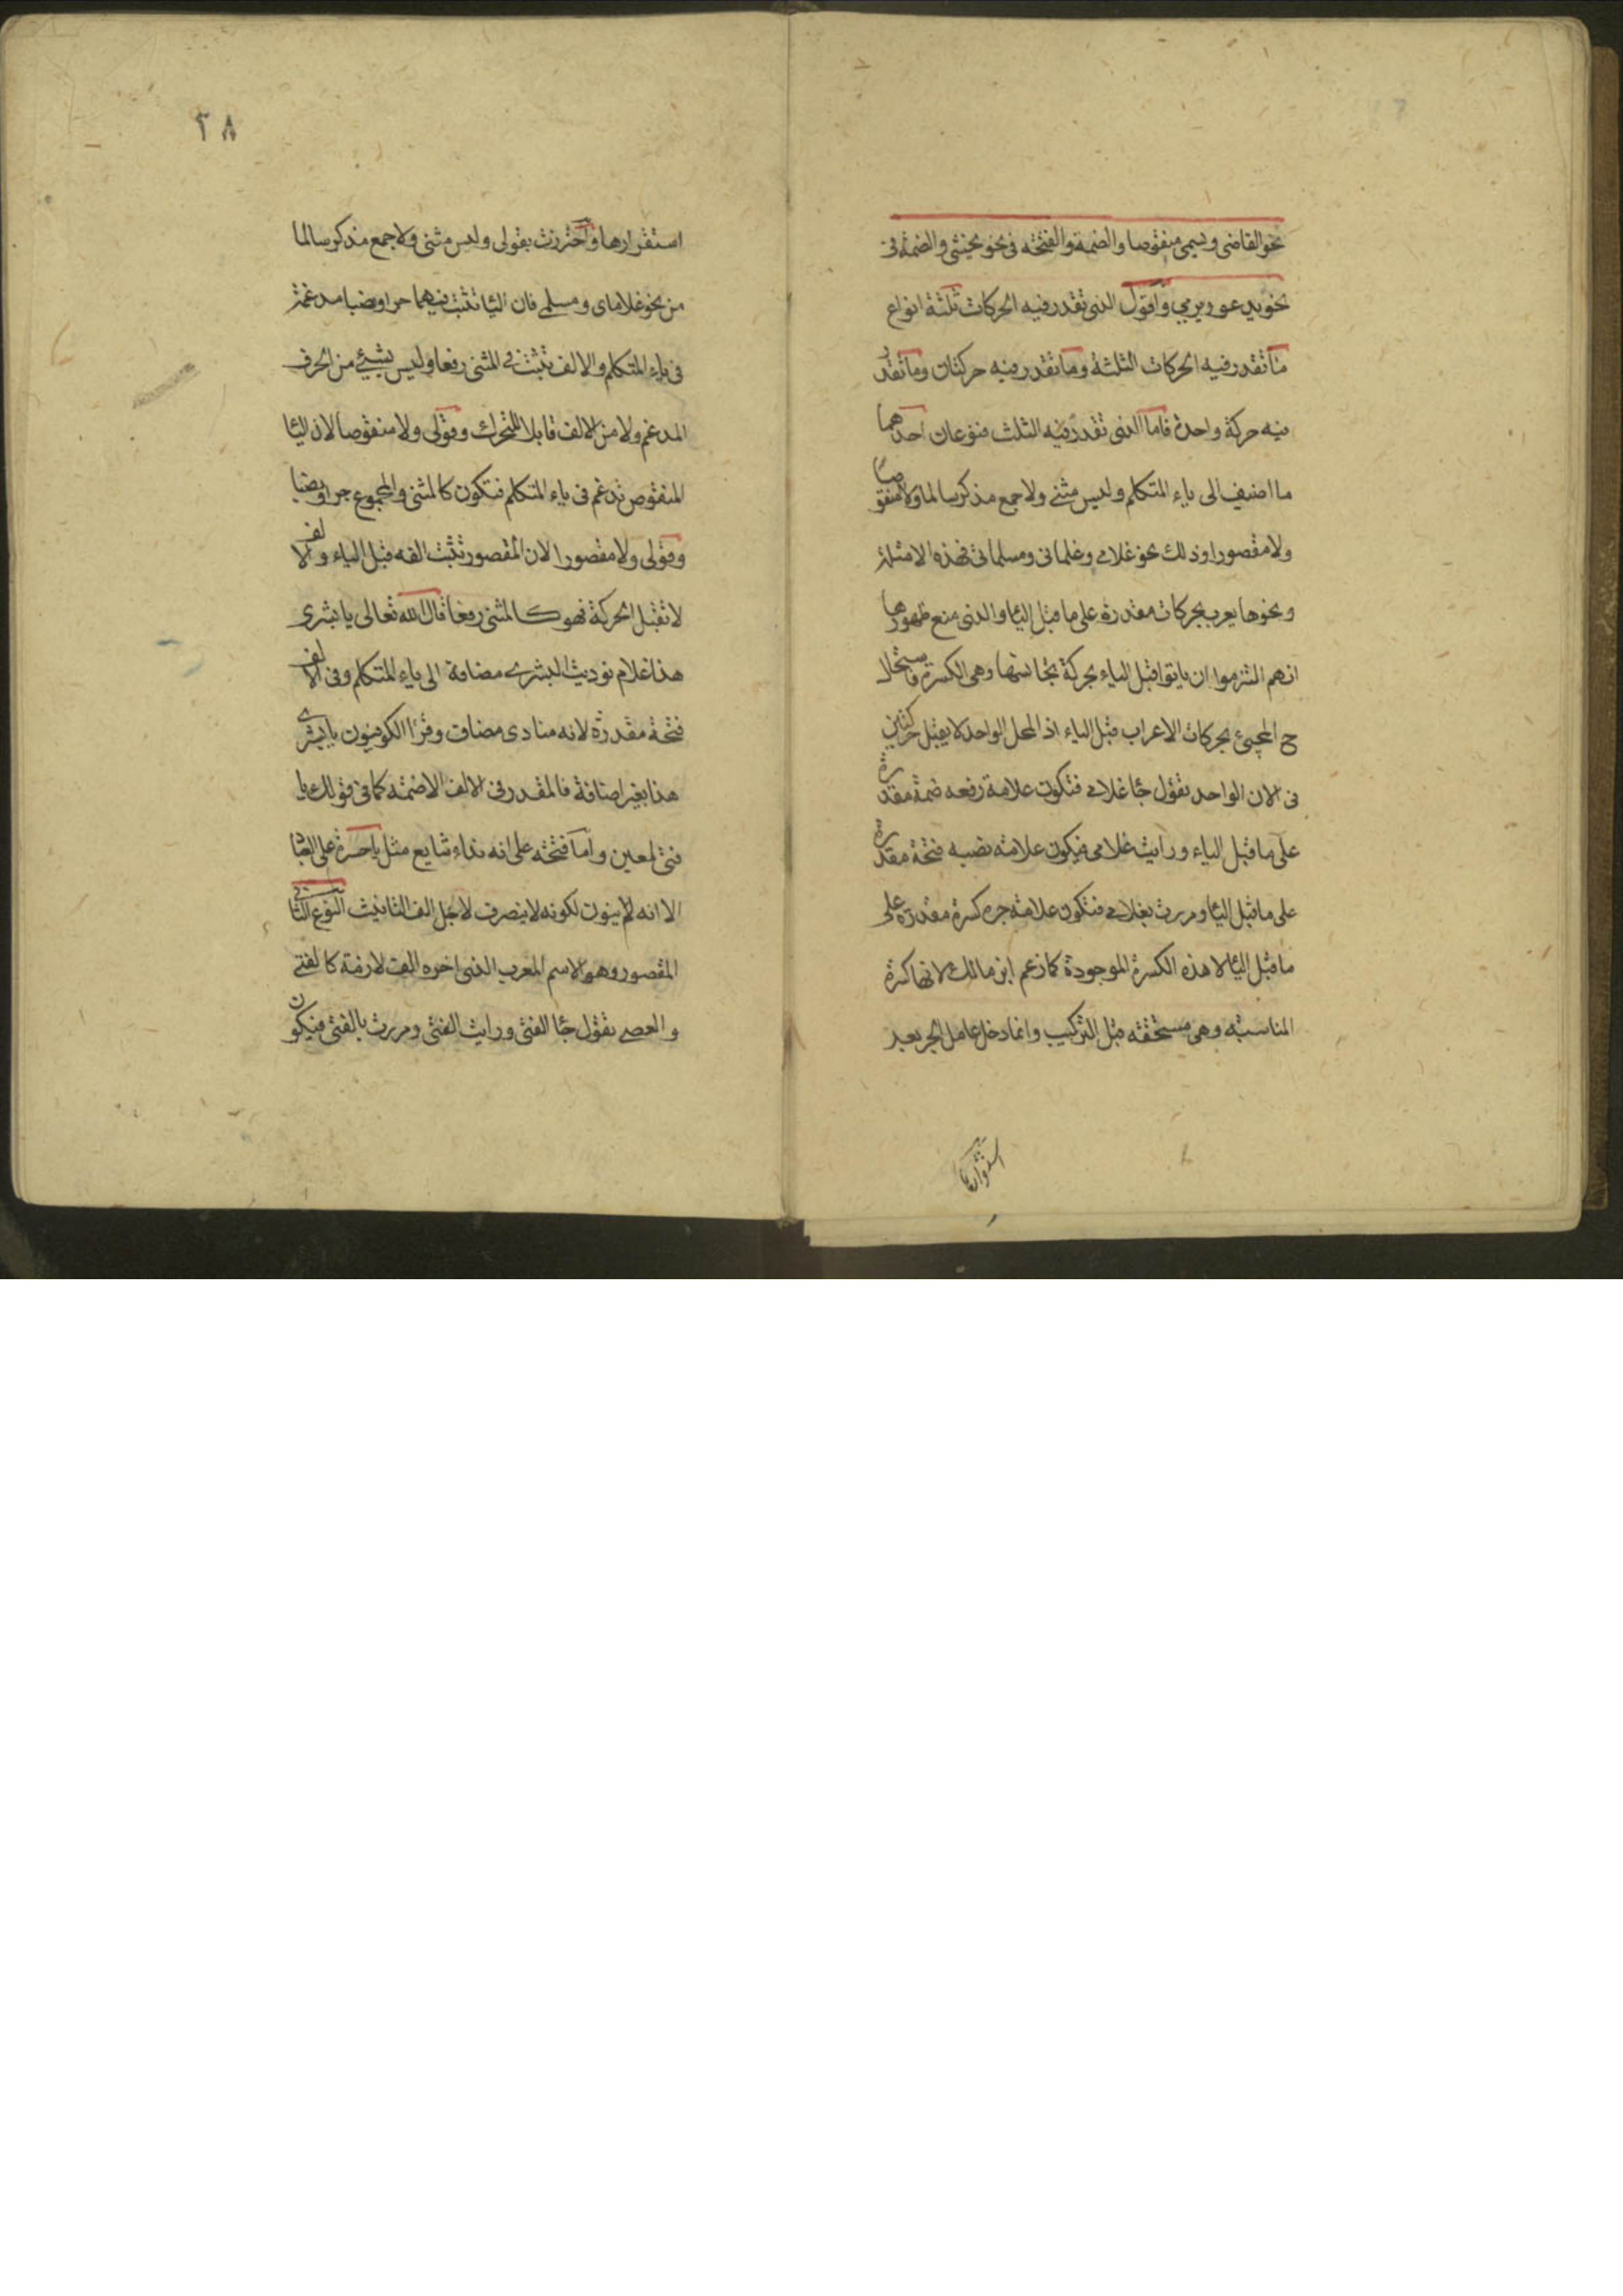 نحو القاضى ويسمى منقوصا والضمة والفتحة فى نحو يخشى والضمة فى
نحو يدعو ويرمي وأقول الذى تقدر فيه الحركات ثلثة انواع
ما تقدر فيه الحركات الثلثة وما تقدر فيه حركتان وما تقدر
فيه حركة واحدة فاما الذى تقدر فيه الثلث فنوعان احدهما
ما اضيف الى ياء المتكلم وليس مثنى ولا جمع مذكر سالما ولا منقوصا
ولا مقصورا وذلك نحو غلامي وغلمانى ومسلماتى فهذه الامثلة
ونحوها يعرب بحركات مقدرة على ما قبل اليا والذى منع ظهورها
انهم التزموا ان ياتوا قبل الياء بحركة تجانسها وهى الكسرة فاستحال
ح المجيئ بحركات الاعراب قبل الياء اذ المحل الواحد لا يقبل حركتين
فى الان الواحد تقول جا غلامي فتكون علامة رفعه ضمة مقدرة
على ما قبل الياء ورايت غلامى فيكون علامة نصبه فتحة مقدرة
على ما قبل اليا ومررت بغلامي فتكون علامة جره كسرة مقدرة على
ما قبل اليا لا هذه الكسرة الموجودة كما زعم ابن مالك لانها كسرة
المناسبة وهى مستحقة قبل التركيب وانما دخل عامل الجر بعد
استقرارها
٢٨
استقرارها واحترزت بقولى وليس مثنى ولا جمع مذكر سالما
من نحو غلاماى ومسلمي فان اليا تثبت فيهما جرا ونصبا مدغمة
فى ياء المتكلم والالف تثبت في المثنى رفعا وليس بشيئ من الحرف
المدغم ولا من الالف قابلا للتحراك وقولى ولا منقوصا لان اليا
المنقوص تدغم فى ياء المتكلم فتكون كالمثنى والمجموع جرا ونصبا
وقولى ولا مقصورا لان المقصور تثبت الفه قبل الياء والالف
لا تقبل الحركة فهو كالمثنى رفعا قال الله تعالى يا بشرى
هذا غلام نوديت البشرى مضافة الى ياء المتكلم وفى الالف
فتحة مقدرة لانه منادى مضاف وقرا الكوفيون يا بشرى
هذا بغير اضافة فالمقدر فى الالف الاضمة كما فى قولك يا
فتى لمعين واما فتحة على انه نداء شايع مثل يا حسرة على العباد
الا انه لم ينون لكونه لا ينصرف لاجل الف التانيث النوع الثانى
المقصور وهو الاسم المعرب الذى اخره الف لازمة كالفتى
والعصى تقول جا الفتى ورايت الفتى ومررت بالفتى فيكون